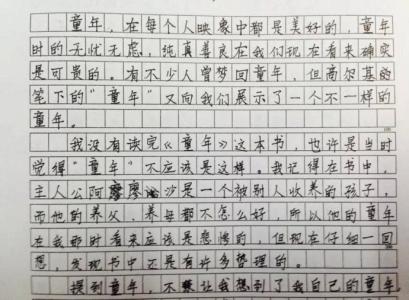 童年，在每个人映象中都是美好的，童年
时的无忧无虑，纯真善良在我们现在看来确实
是可贵的。有不少人曾梦回童年，但高尔基的
笔下的“童年”又向我们展示了一个不一样的
童年。
我没有读完《童年》这本书，也许是当时
觉得“童年”不应该是这样。我记得在书中，
主人公阿廖沙是一个被别人收养的孩子，
而他的养父、养母都不怎么好，所以他的童年
在我那时看来应该是悲惨的，但现在仔细一回
想，发现书中还是有许多哲理的。
提到童年，不让我想到了我自己的童年